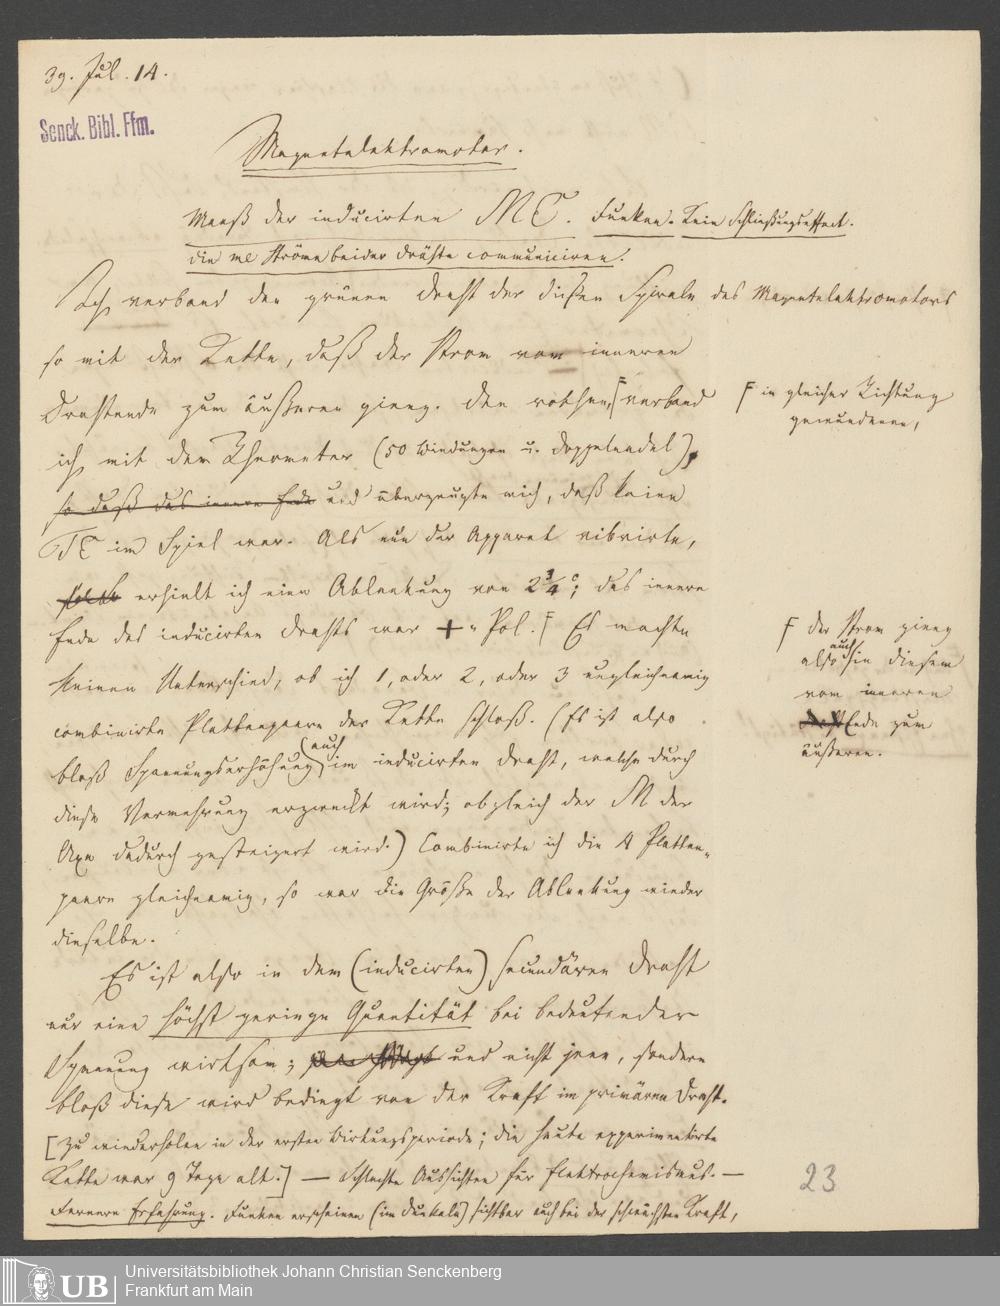 39. Jul. 14.
Senck. Bibl. Ffm.
Magnetelektromotor.
Maaß der inducirten ME. Funken. Kein Schließungseffect.
die me Ströme beider Drähte communiciren.
Ich verband den grünen Draht der dicken Spirale des Magnetelektromotors
so mit der Kette, daß der Strom vom inneren
Drahtende zum äußeren gieng. Den rothen, F verband
F in gleicher Richtung
gewundenen,
ich mit dem Thermeter (50 Windungen u. Doppelnadel),
so daß das innere Ende und überzeugte mich, daß keine
TE im Spiel war. Als nun der Apparat vibrirte,
erhielt ich eine Ablenkung von 2¾°; das innere
Ende des inducirten Drahts war + Pol. F Es machte
F der Strom gieng
also auch in diesem
vom inneren
Ende zum
äußeren.
keinen Unterschied, ob ich 1, oder 2, oder 3 ungleichnamig
combinirte Plattenpaare der Kette schloß. (Es ist also
bloß Spannungserhöhung (auch) im inducirten Draht, welche durch
diese Vermehrung erzweckt wird; obgleich der M der
Axe dadurch gesteigert wird.) Combinirte ich die 4 Platten-
paare gleichnamig, so war die Größe der Ablenkung wieder
dieselbe.
Es ist also in dem (inducirten) secundären Draht
nur eine höchst geringe Quantität bei bedeutender
Spannung wirksam; und nicht jene, sondern
bloß diese wird bedingt von der Kraft im primären Draht.
[Zu wiederholen in der ersten Wirkungsperiode; die heute experimentirte
Kette war 9 Tage alt.] — Schlechte Aussichten für Elektrochemismus. —
Fernere Erfahrung. Funken erscheinen (im Dunkeln) sichtbar auch bei der schwächsten Kraft,
23
UB
Universitätsbibliothek Johann Christian Senckenberg
Frankfurt am Main